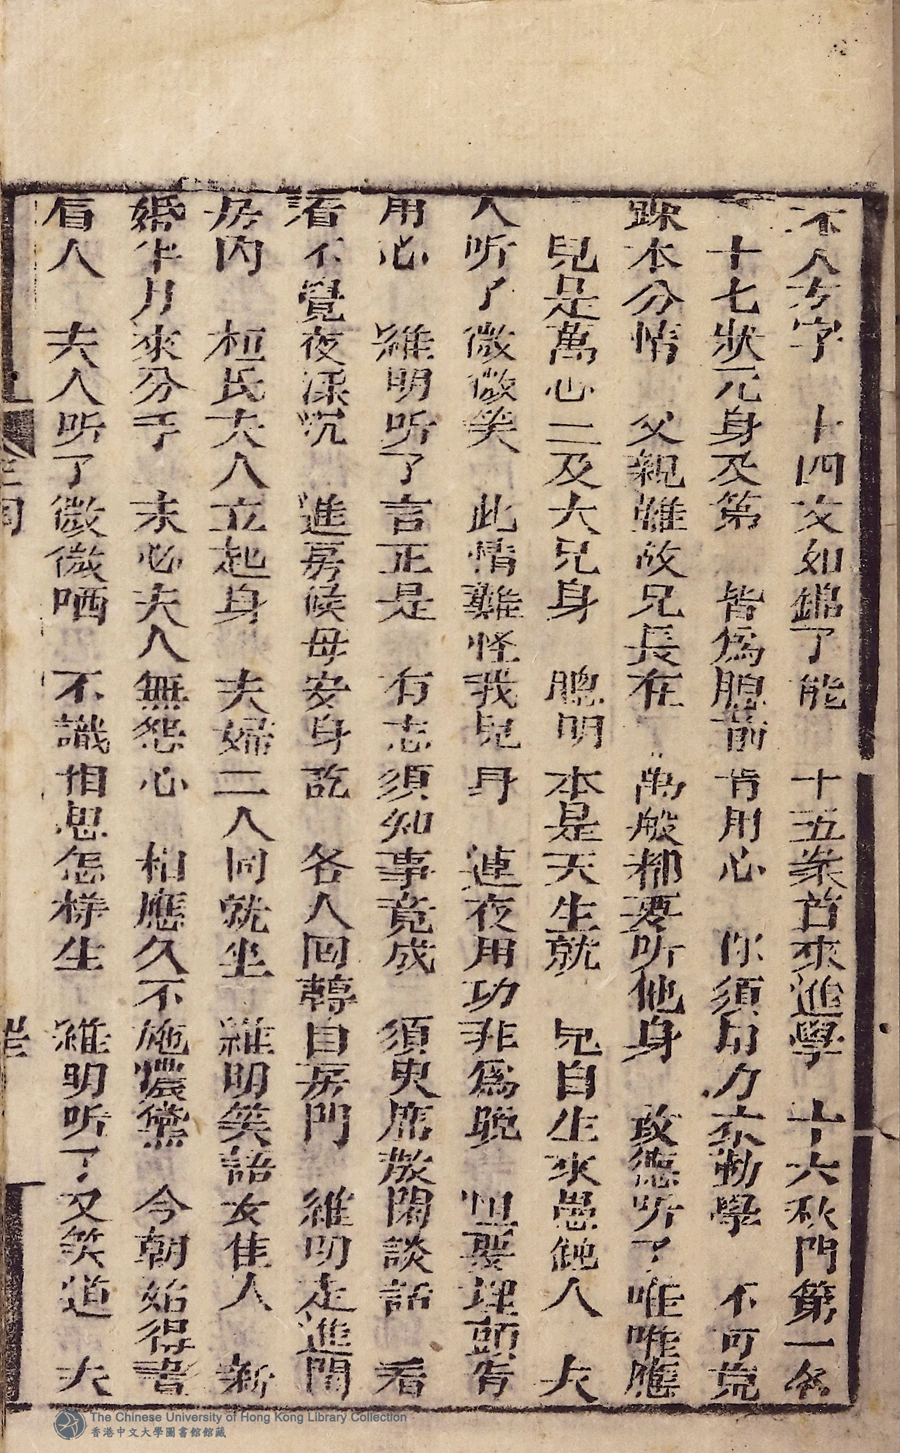 不人方字 十四文如錦了能 十五案首來進學 十六秋門第一名
十七狀元身及第 皆為胞前肯用心 你須用力亦勤學 不可荒
踈本分情 父親雖故兄長在 萬般都要听他身 攻德听了唯唯應
兒是萬心二及大兄身 聰明本是天生就 兄自生來愚鈍人 夫
人听了微微笑 此情難怪我兒身 連夜用功非為晚 但要埋頭肯
用心 維明听了言正是 有志須知事竟成 須臾席散閑談話 看
看不覺夜深沉 進房候母安身訖 各人囘轉自房門 維明走進閨
房內 桓氏夫人立起身 夫婦二人同就坐 維明笑語女佳人 新
婚半月來分手 未必夫人無怨心 相應久不施濃黛 今朝始得畫
眉人 夫人听了微微哂 不識相思怎樣生 維明听了又笑道 夫
The Chinese University of Hong Kong Library Collection
香港中文大學圖書館館藏